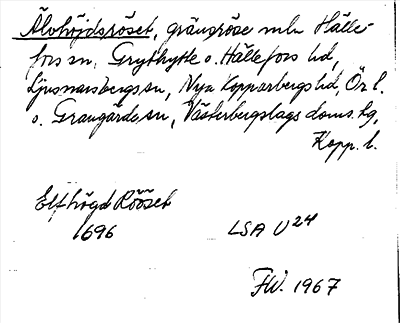 Älvhöjdsröset, gränsröse mln Hälle-
fors sn, Grythytte o. Hällefors hd,
Ljusnarsbergs sn, Nya Kopparbergs hd, Ör l.
o. Grangärde sn, Västerbergslags doms. hg,
Kopp. l.
Elfhögd Rööset
1696
LSA U24
FW. 1967